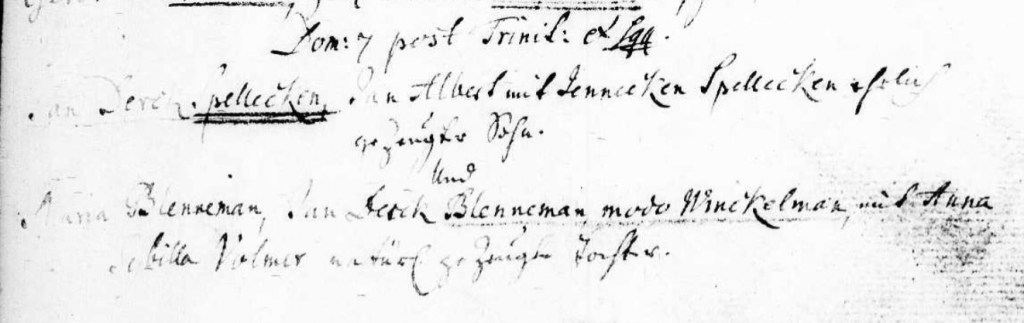 Dom: 7 post Trinit: et sqq.
Jan Derck Spellecken, Jan Albert mit Jennecken Spellecken ehrlich
gezeugter Sohn.
Und
Anna Blenneman, Jan Derck Blenneman modo Winckelman, mit Anna
Sebilla Volmer natürl gezeugte Tochter.